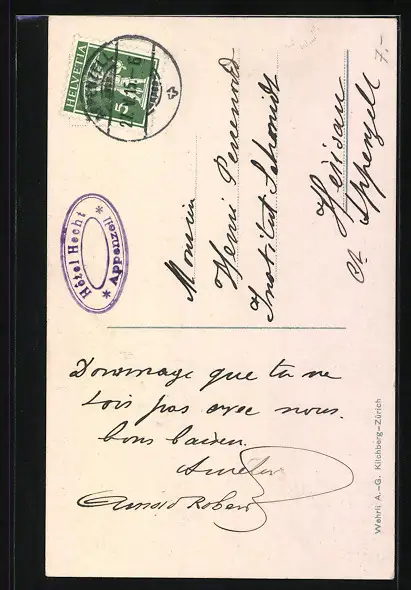 HELVETIA
5
Hôtel Hecht
* Appenzell *
Monsieur
Henri Perrenoud
Institut Schmidt
Herisau
Ct Appenzell
7.-
Dommage que tu ne
sois pas avec nous.
bons baisers.
Arnold Robert
Wehrli A.-G. Kilchberg-Zürich